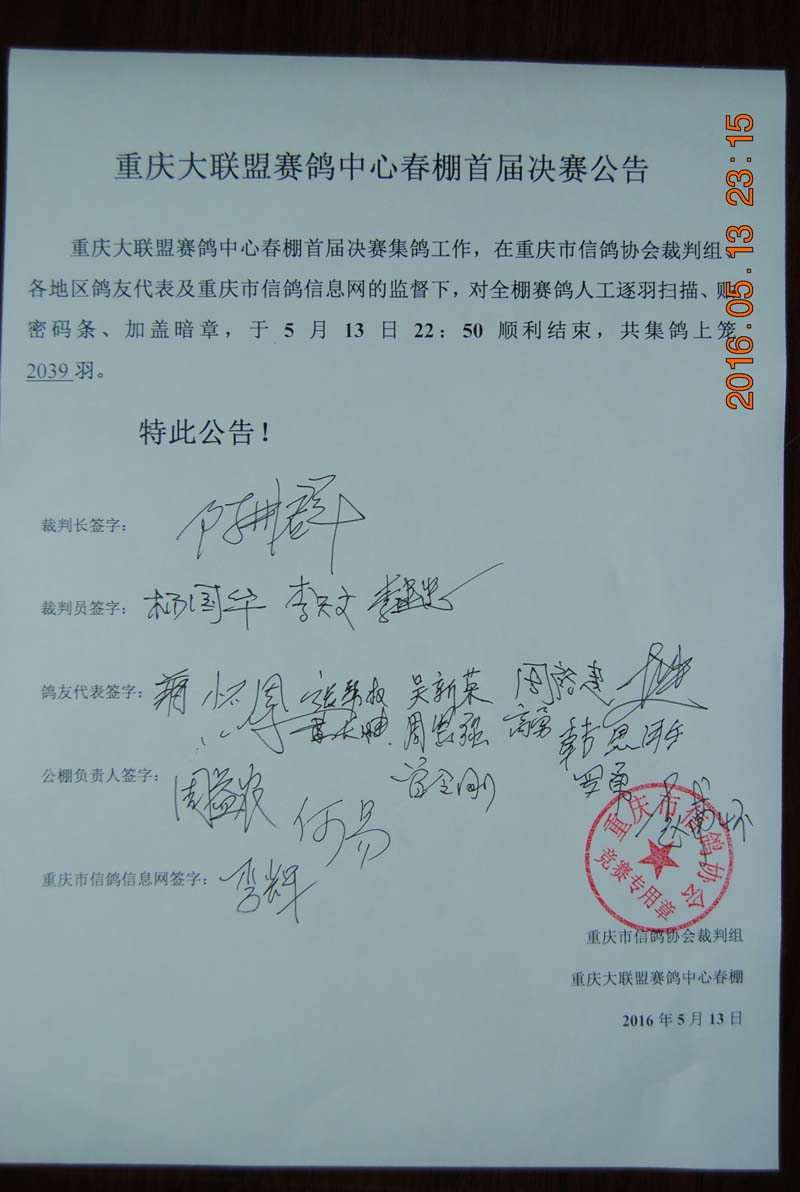 重庆大联盟赛鸽中心春棚首届决赛公告
重庆大联盟赛鸽中心春棚首届决赛集鸽工作，在重庆市信鸽协会裁判组、
各地区鸽友代表及重庆市信鸽信息网的监督下，对全棚赛鸽人工逐羽扫描、贴
密码条、加盖暗章，于 5 月 13 日 22：50 顺利结束，共集鸽上笼
2039 羽。
特此公告！
裁判长签字：
裁判员签字： 杨国华 李天文
鸽友代表签字： 蒋怀周 吴新英
周思强 高勇
公棚负责人签字： 周益农 曾令刚 罗勇
何易
重庆市信鸽信息网签字： 李辉
重庆市信鸽协会
竞赛专用章
重庆市信鸽协会裁判组
重庆大联盟赛鸽中心春棚
2016 年 5 月 13 日
2016.05.13 23:15